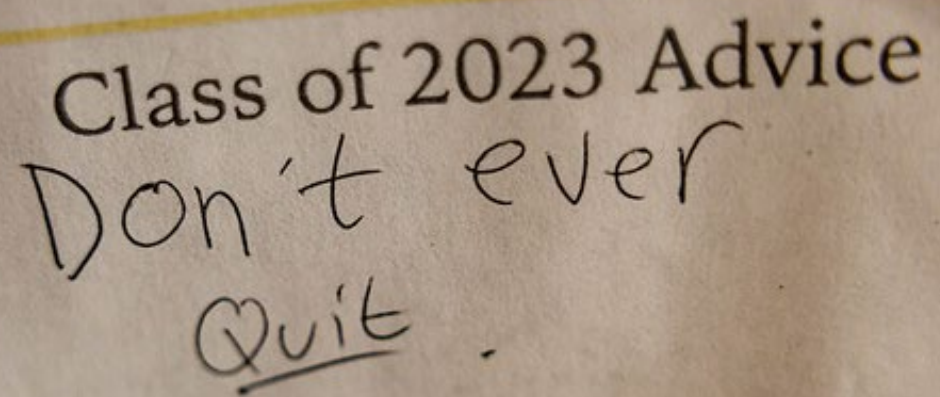 Class of 2023 Advice
Don't ever
Quit.